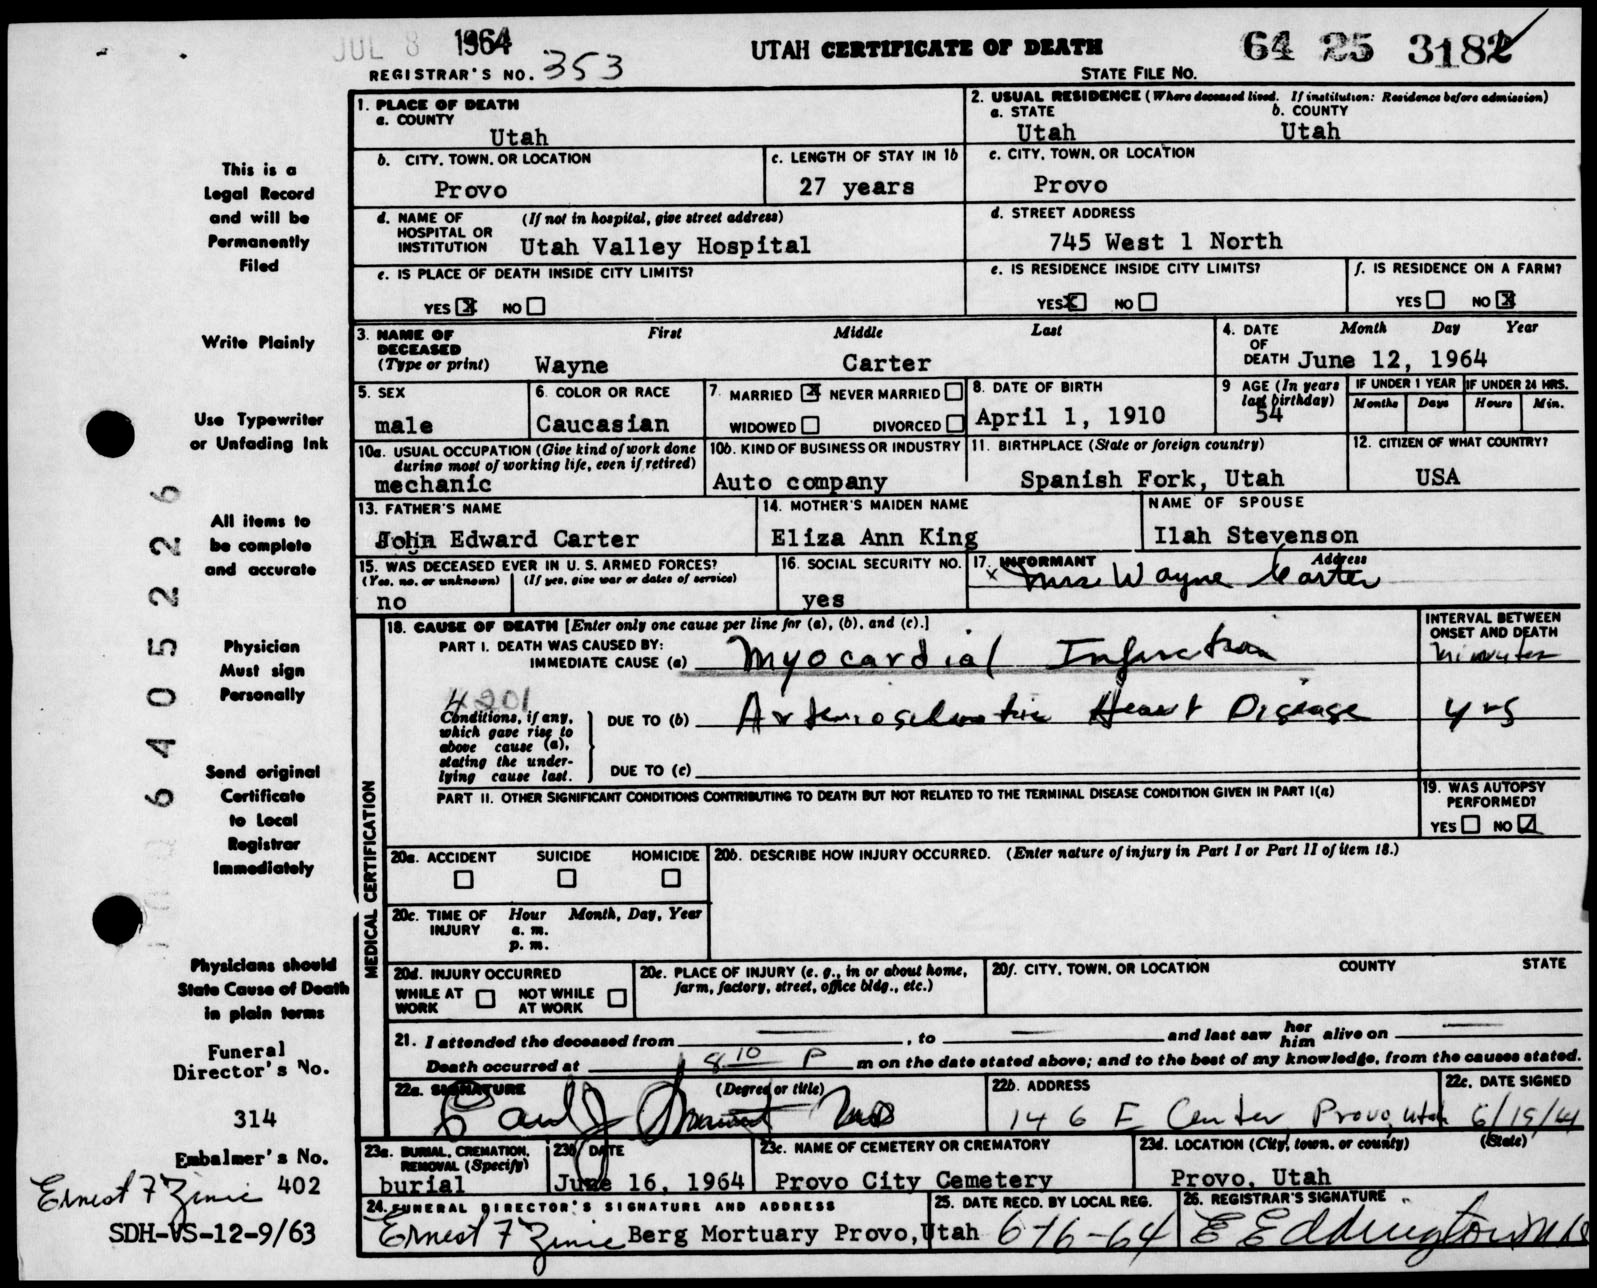 JUL 8 1964
REGISTRAR'S NO. 353
UTAH CERTIFICATE OF DEATH
STATE FILE NO. 64 25 3182
This is a
Legal Record
and will be
Permanently
Filed
Write Plainly
Use Typewriter
or Unfading Ink
All items to
be complete
and accurate
Physician
Must sign
Personally
Send original
Certificate
to Local
Registrar
Immediately
Physicians should
State Cause of Death
in plain terms
Funeral
Director's No.
314
Embalmer's No.
Ernest F Zinie 402
SDH-VS-12-9/63
64052226
1. PLACE OF DEATH
a. COUNTY
Utah
2. USUAL RESIDENCE (Where deceased lived. If institution: Residence before admission)
a. STATE b. COUNTY
Utah Utah
b. CITY, TOWN, OR LOCATION
Provo
c. LENGTH OF STAY IN 1b
27 years
c. CITY, TOWN, OR LOCATION
Provo
d. NAME OF (If not in hospital, give street address)
HOSPITAL OR
INSTITUTION Utah Valley Hospital
d. STREET ADDRESS
745 West 1 North
e. IS PLACE OF DEATH INSIDE CITY LIMITS?
YES X NO
e. IS RESIDENCE INSIDE CITY LIMITS?
YES X NO
f. IS RESIDENCE ON A FARM?
YES NO X
3. NAME OF First Middle Last
DECEASED
(Type or print) Wayne Carter
4. DATE Month Day Year
OF
DEATH June 12, 1964
5. SEX
male
6. COLOR OR RACE
Caucasian
7. MARRIED X NEVER MARRIED
WIDOWED DIVORCED
8. DATE OF BIRTH
April 1, 1910
9 AGE (In years
last birthday)
54
IF UNDER 1 YEAR IF UNDER 24 HRS.
Months Days Hours Min.
10a. USUAL OCCUPATION (Give kind of work done
during most of working life, even if retired)
mechanic
10b. KIND OF BUSINESS OR INDUSTRY
Auto company
11. BIRTHPLACE (State or foreign country)
Spanish Fork, Utah
12. CITIZEN OF WHAT COUNTRY?
USA
13. FATHER'S NAME
John Edward Carter
14. MOTHER'S MAIDEN NAME
Eliza Ann King
NAME OF SPOUSE
Ilah Stevenson
15. WAS DECEASED EVER IN U.S. ARMED FORCES?
(Yes, no, or unknown) (If yes, give war or dates of service)
no
16. SOCIAL SECURITY NO.
yes
17. INFORMANT Address
x Mrs Wayne Carter
MEDICAL CERTIFICATION
18. CAUSE OF DEATH [Enter only one cause per line for (a), (b), and (c).]
INTERVAL BETWEEN
ONSET AND DEATH
PART I. DEATH WAS CAUSED BY:
IMMEDIATE CAUSE (a) Myocardial Infarction minutes
4201
Conditions, if any,
which gave rise to
above cause (a),
stating the under-
lying cause last.
DUE TO (b) Arteriosclerotic Heart Disease yrs
DUE TO (c)
PART II. OTHER SIGNIFICANT CONDITIONS CONTRIBUTING TO DEATH BUT NOT RELATED TO THE TERMINAL DISEASE CONDITION GIVEN IN PART I(a)
19. WAS AUTOPSY
PERFORMED?
YES NO
20a. ACCIDENT SUICIDE HOMICIDE
20b. DESCRIBE HOW INJURY OCCURRED. (Enter nature of injury in Part I or Part II of item 18.)
20c. TIME OF Hour Month, Day, Year
INJURY a. m.
p. m.
20d. INJURY OCCURRED
WHILE AT NOT WHILE
WORK AT WORK
20e. PLACE OF INJURY (e. g., in or about home,
farm, factory, street, office bldg., etc.)
20f. CITY, TOWN, OR LOCATION COUNTY STATE
21. I attended the deceased from , to and last saw her him alive on
Death occurred at 8 10 P m on the date stated above; and to the best of my knowledge, from the causes stated.
22a. SIGNATURE (Degree or title)
22b. ADDRESS
146 E Center Provo, Utah
22c. DATE SIGNED
23a. BURIAL, CREMATION,
REMOVAL (Specify)
burial
23b DATE
June 16, 1964
23c. NAME OF CEMETERY OR CREMATORY
Provo City Cemetery
23d. LOCATION (City, town, or county) (State)
Provo, Utah
24. FUNERAL DIRECTOR'S SIGNATURE AND ADDRESS
Ernest F Zinie Berg Mortuary Provo, Utah
25. DATE RECD. BY LOCAL REG.
6-16-64
26. REGISTRAR'S SIGNATURE
E E Eddington MD